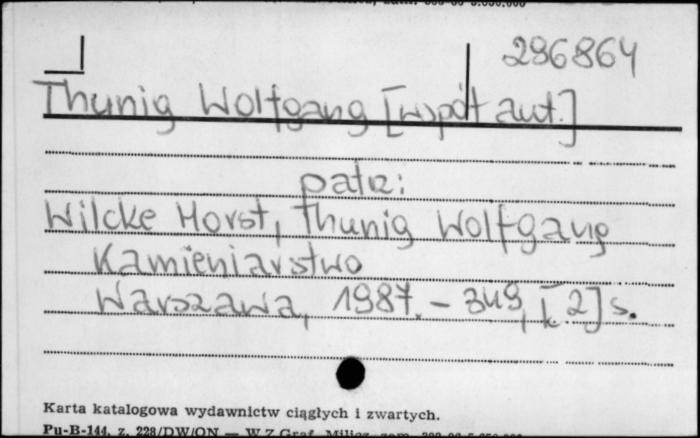 296864
Thunig Wolfgang [współaut.]
patrz:
Wilcke Horst, Thunig Wolfgang
Kamieniarstwo
Warszawa, 1987. – 349, [2] s.
Karta katalogowa wydawnictw ciągłych i zwartych.
Pu-B-144, z. 228/DW/ON — W.Z.Graf. Milicz, zam.